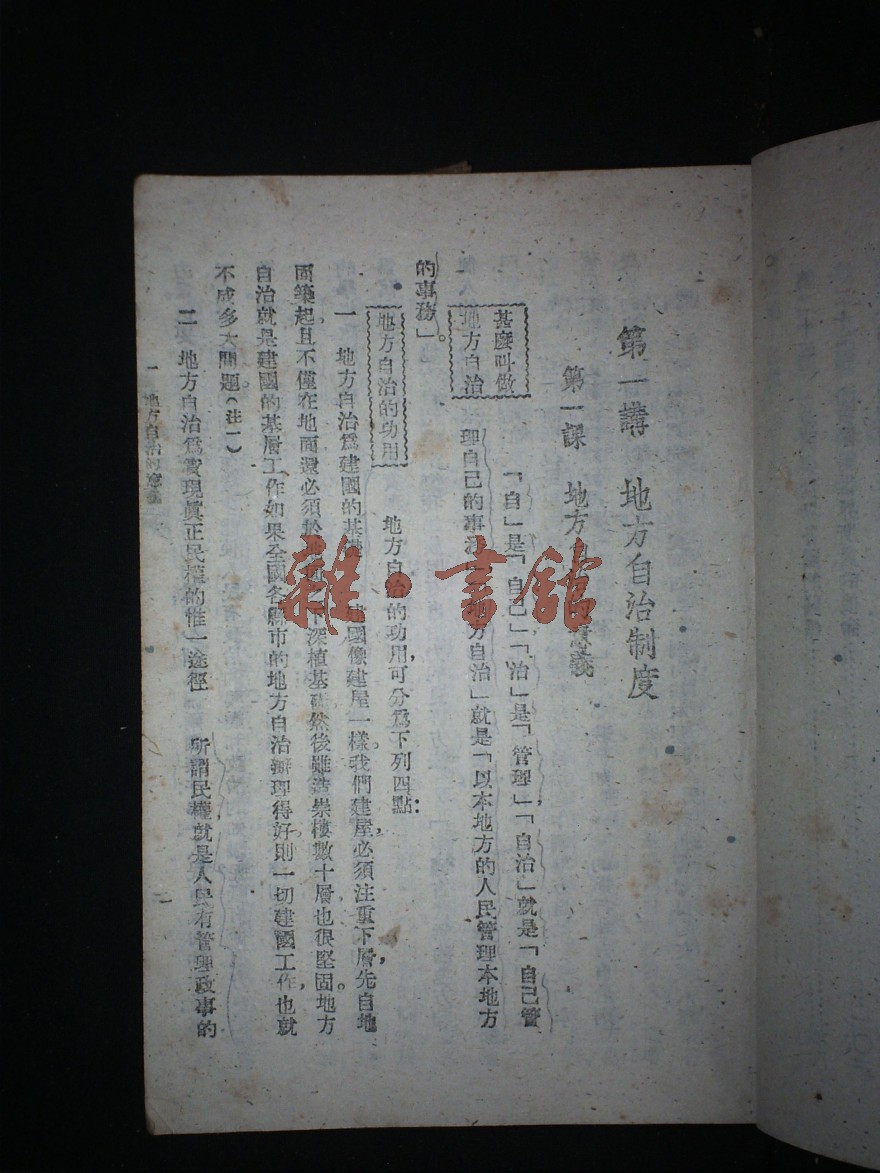 第一講　地方自治制度
第一課　地方自　意義
甚麼叫做
地方自治
「自」是「自己」「治」是「管理」，「自治」就是「自己管
理自己的事　地方自治」就是「以本地方的人民管理本地方
的事務」。
地方自治的功用
地方自治的功用，可分爲下列四點：
一　地方自治爲建國的基　建國像建屋一樣。我們建屋，必須注重下層，先自地
面築起。且不僅在地面，還必須於地　下深植基礎，然後雖造崇樓數十層也很堅固。地方
自治就是建國的基層工作。如果全國各縣市的地方自治辦理得好，則一切建國工作，也就
不成多大問題。（注一）
二　地方自治爲實現眞正民權的惟一途徑　所謂民權，就是人民有管理政事的
一　地方自治的意義
雜·書館